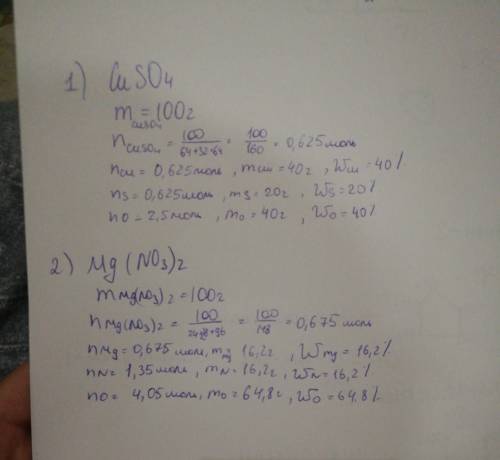 1) CuSO4
m CuSO4 = 100г
n CuSO4 = 100/(64+32+64) = 100/160 = 0,625 моль
n Cu = 0,625 моль, m Cu = 40г, Wcu = 40%
nS = 0,625 моль, mS = 20г, WS = 20%
nO = 2,5 моль, mO = 40г, WO = 40%
2) Mg(NO3)2
m Mg(NO3)2 = 100г
n Mg(NO3)2 = 100/(24+28+96) = 100/148 = 0,675 моль
n Mg = 0,675 моль, m Mg 16,2г, Wmg = 16,2%
nN = 1,35 моль, mN = 16,2г, WN = 16,2%
nO = 4,05 моль, mO = 64,8г, WO = 64.8%